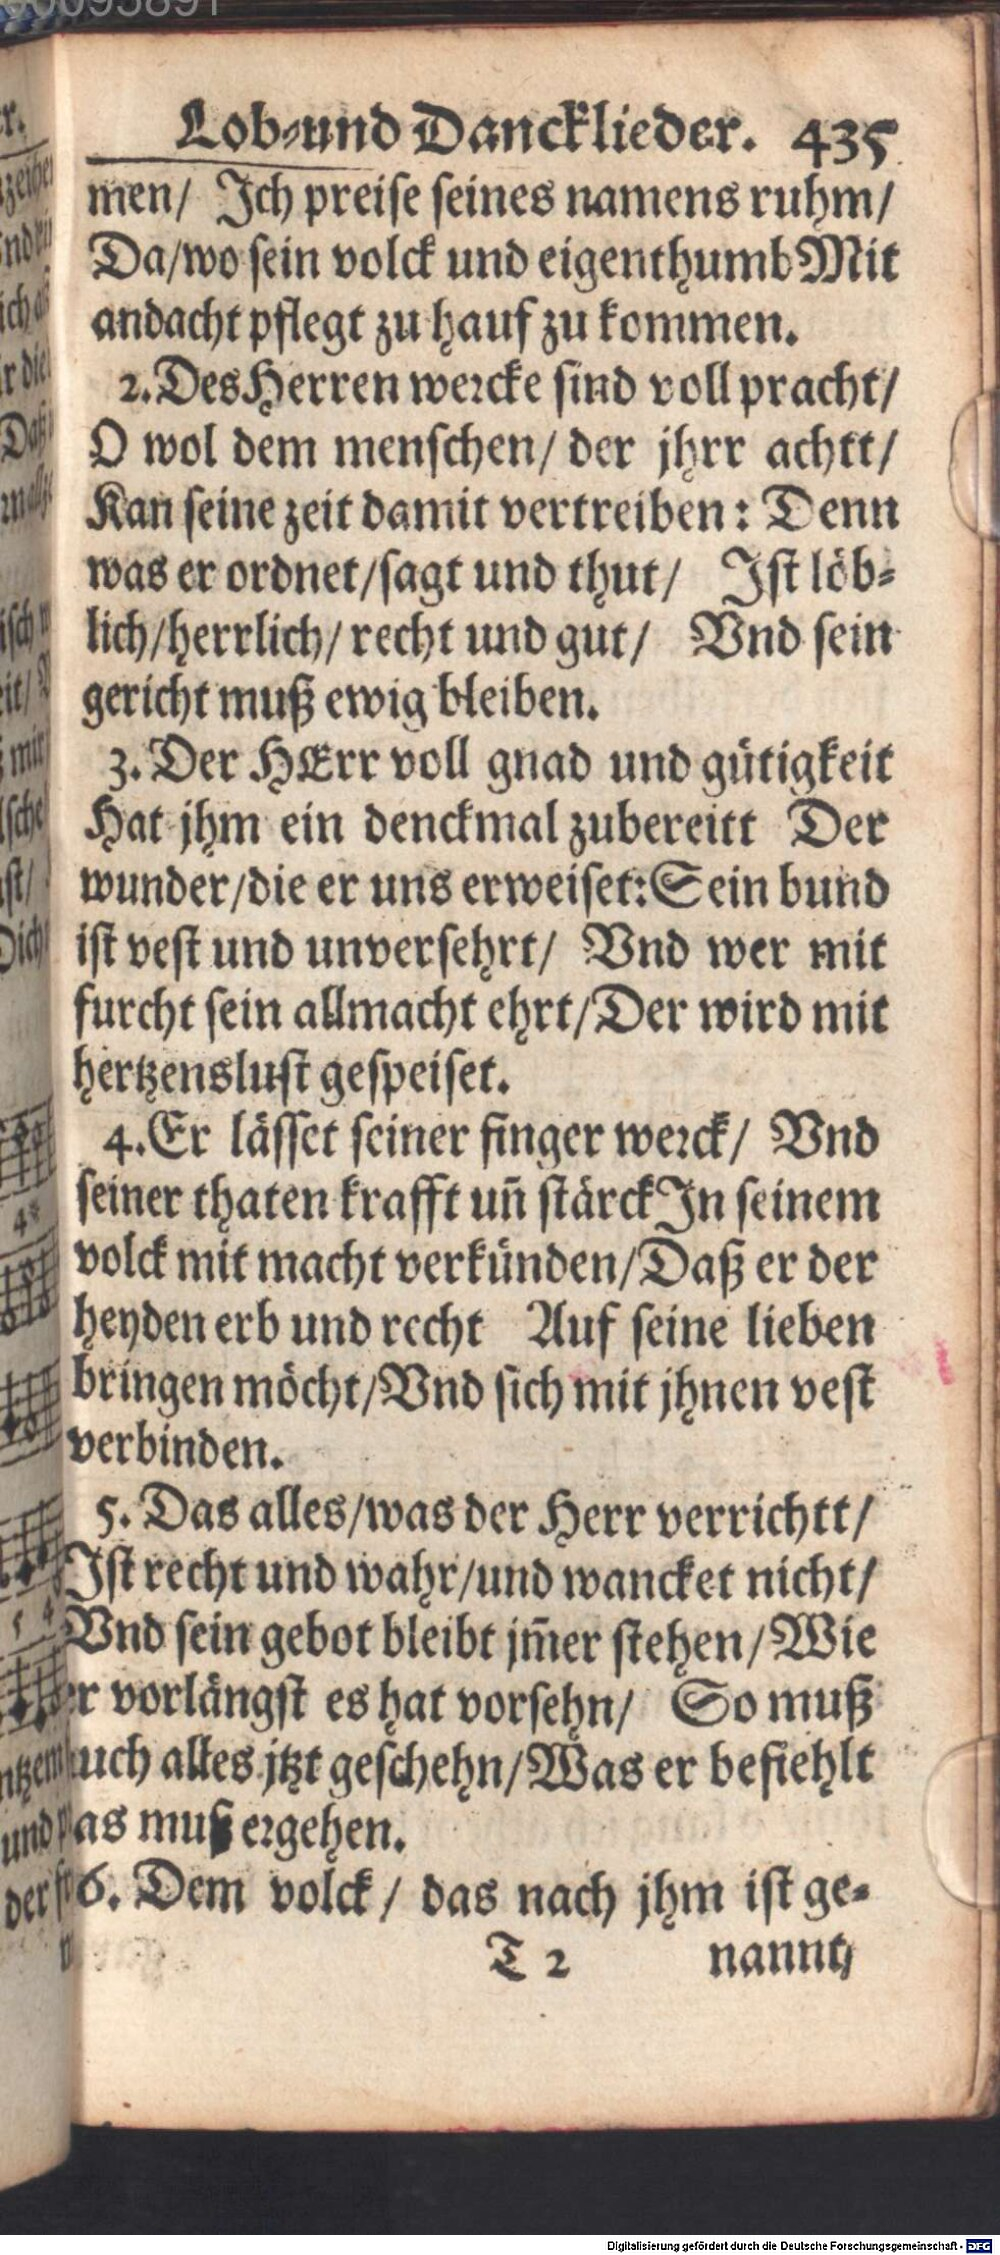 Lob-und Dancklieder. 435
men/ Ich preise seines namens ruhm/
Da/wo sein volck und eigenthumb Mit
andacht pflegt zu hauf zu kommen.
2. Des Herren wercke sind voll pracht/
O wol dem menschen/ der jhrr achtt/
Kan seine zeit damit vertreiben: Denn
was er ordnet/sagt und thut/ Ist löb-
lich/herrlich/ recht und gut/ Vnd sein
gericht muß ewig bleiben.
3. Der HErr voll gnad und gütigkeit
Hat jhm ein denckmal zubereitt Der
wunder/die er uns erweiset: Sein bund
ist vest und unversehrt/ Vnd wer mit
furcht sein allmacht ehrt/Der wird mit
hertzenslust gespeiset.
4. Er lässet seiner finger werck/ Vnd
seiner thaten krafft uñ stärck In seinem
volck mit macht verkünden/Daß er der
heyden erb und recht Auf seine lieben
bringen möcht/Vnd sich mit jhnen vest
verbinden.
5. Das alles/was der Herr verrichtt/
Ist recht und wahr/und wancket nicht/
Vnd sein gebot bleibt jm̃er stehen/Wie
er vorlängst es hat vorsehn/ So muß
auch alles jtzt geschehn/Was er befiehlt
das muß ergehen.
6. Dem volck/ das nach jhm ist ge-
T 2 nannt/
Digitalisierung gefördert durch die Deutsche Forschungsgemeinschaft - DFG